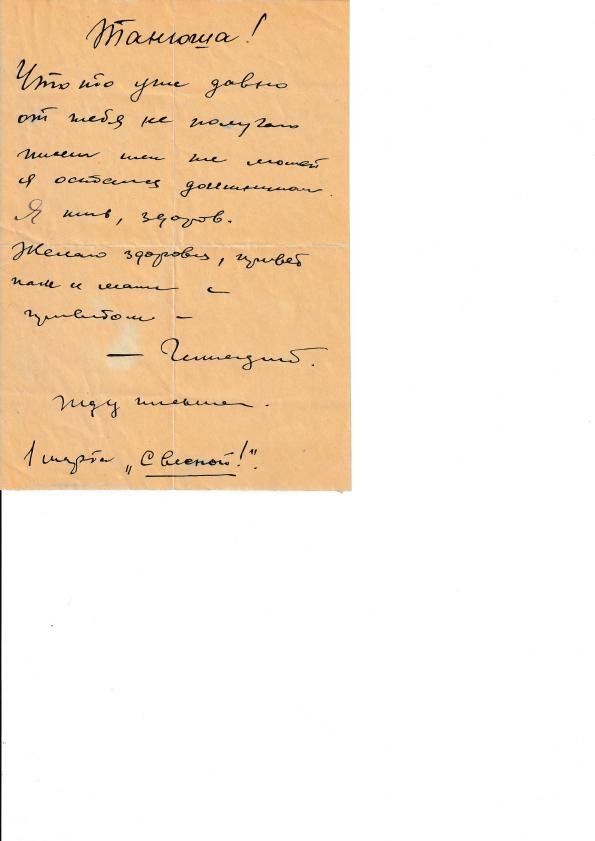 Танюша!
Что то уже давно
от тебя не получаю
писем или не может
я остался должником
Я жив, здоров.
Желаю здоровья, привет
папе и маме с
приветом –
— Геннадий.
Жду письма.
1 марта „С весной!".